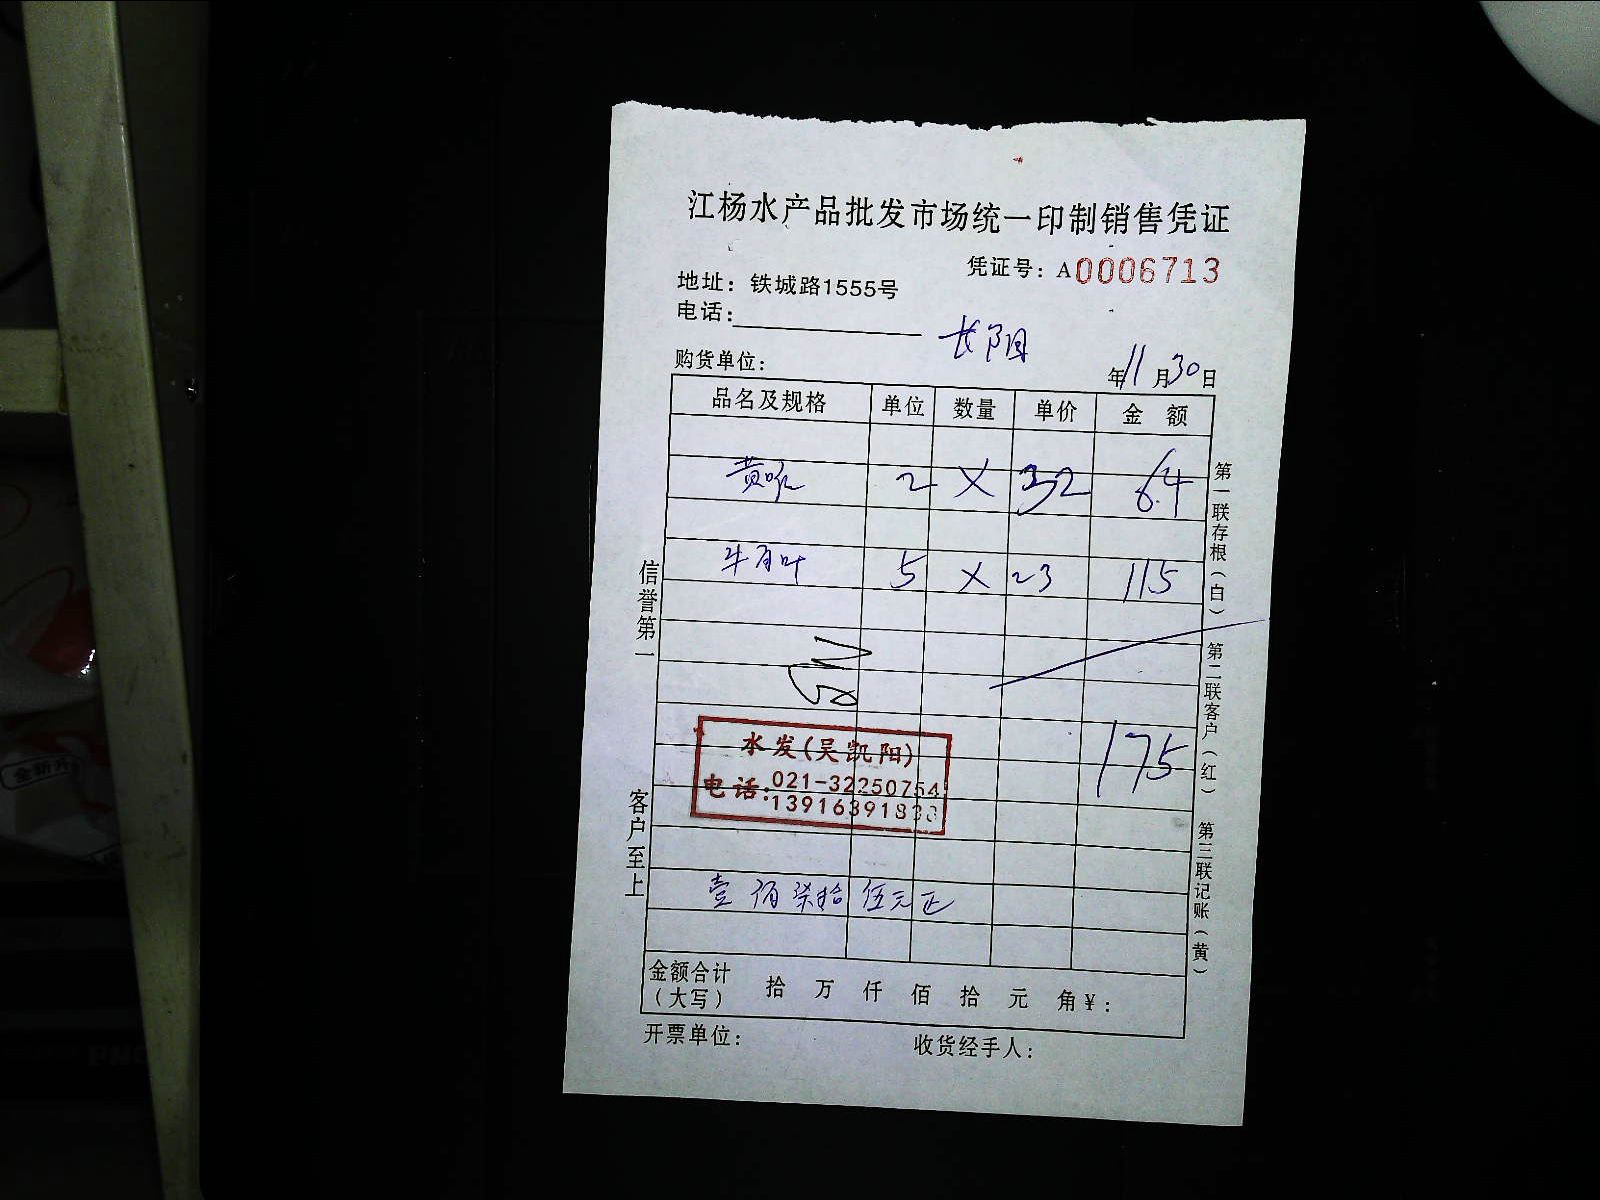 江杨水产品批发市场统一印制销售凭证
凭证号：A0006713
地址：铁城路1555号
电话：
长阳
购货单位：
年11月30日
品名及规格 单位 数量 单价 金 额
黄喉 2 X 32 64
牛百叶 5 X 23 115
175
水发(吴凯阳)
电话：021-32250754
壹佰柒拾伍元正
金额合计（大写） 拾 万 仟 佰 拾 元 角￥：
开票单位： 收货经手人：
信誉第一
客户至上
第一联存根（白）
第二联客户（红）
第三联记账（黄）